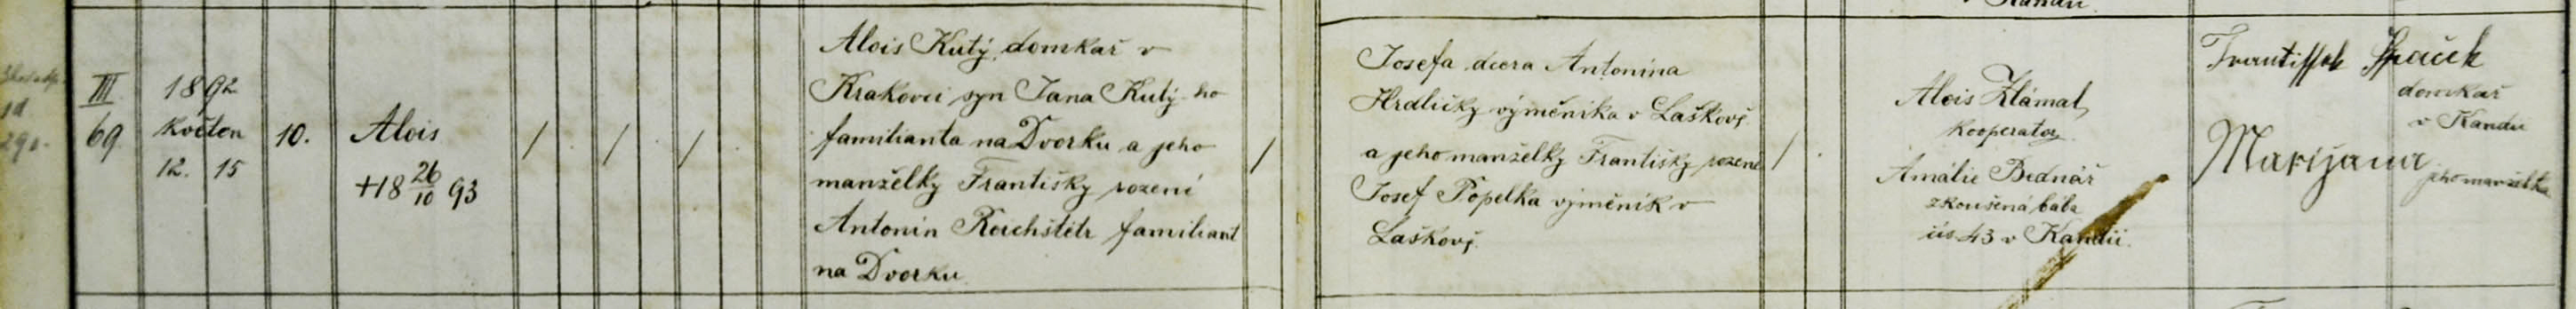 Kandii.
III
69
1892
Květen
12. 15
10.
Alois
+18 26/10 93
Alois Kutý, domkař v
Krakovci syn Jana Kutý-ho
familianta na Dvorku a jeho
manželky Františky rozené
Antonín Reichštětr familiant
na Dvorku
Josefa dcera Antonína
Hrdličky výměníka v Laškově
a jeho manželky Františky rozené
Josef Popelka výměník v
Laškově.
Alois Zlámal,
Kooperator
Amálie Bednář
zkoušená bába
čís 43 v Kandii.
Frantissek Spaček
domkař
v Kandii
Marijana jeho manželka